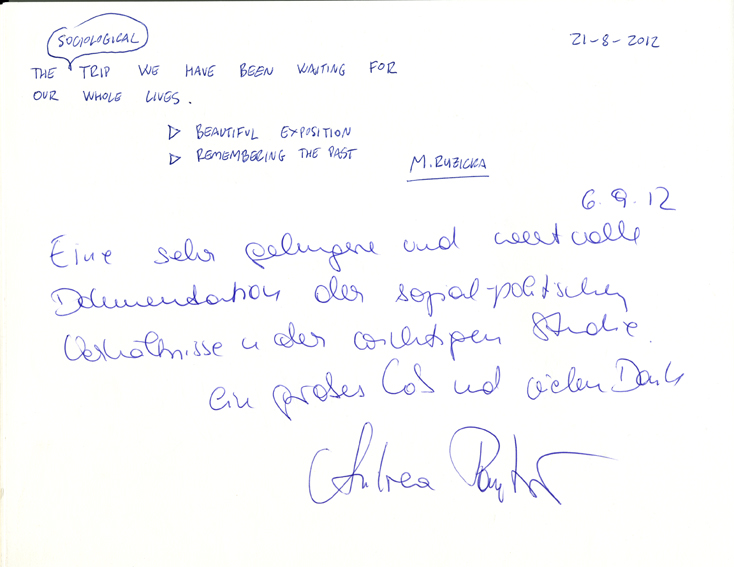 SOCIOLOGICAL
21-8-2012
THE TRIP WE HAVE BEEN WAITING FOR
OUR WHOLE LIVES.
▷ BEAUTIFUL EXPOSITION
▷ REMEMBERING THE PAST
M. RUZICKA
6.9.12
Eine sehr gelungene und wertvolle
Dokumentation der sozial-politischen
Verhältnisse u der wichtigen Studie.
ein großes Lob und vielen Dank
Andrea